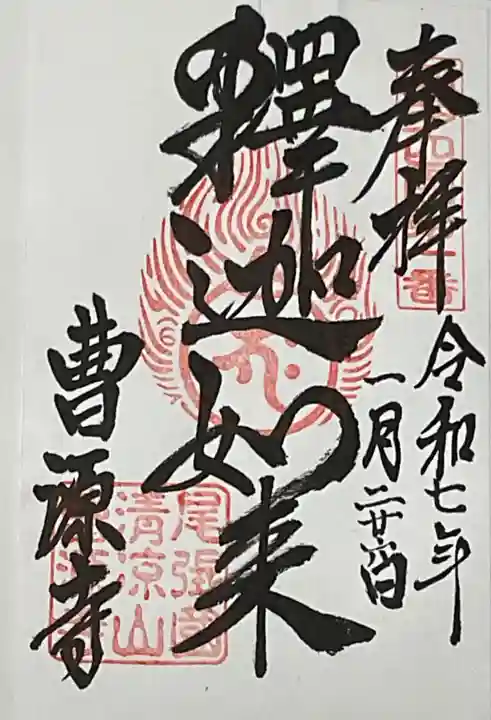 奉拝
令和七年
一月二十六日
釋迦如来
曹源寺
尾張國
清涼山